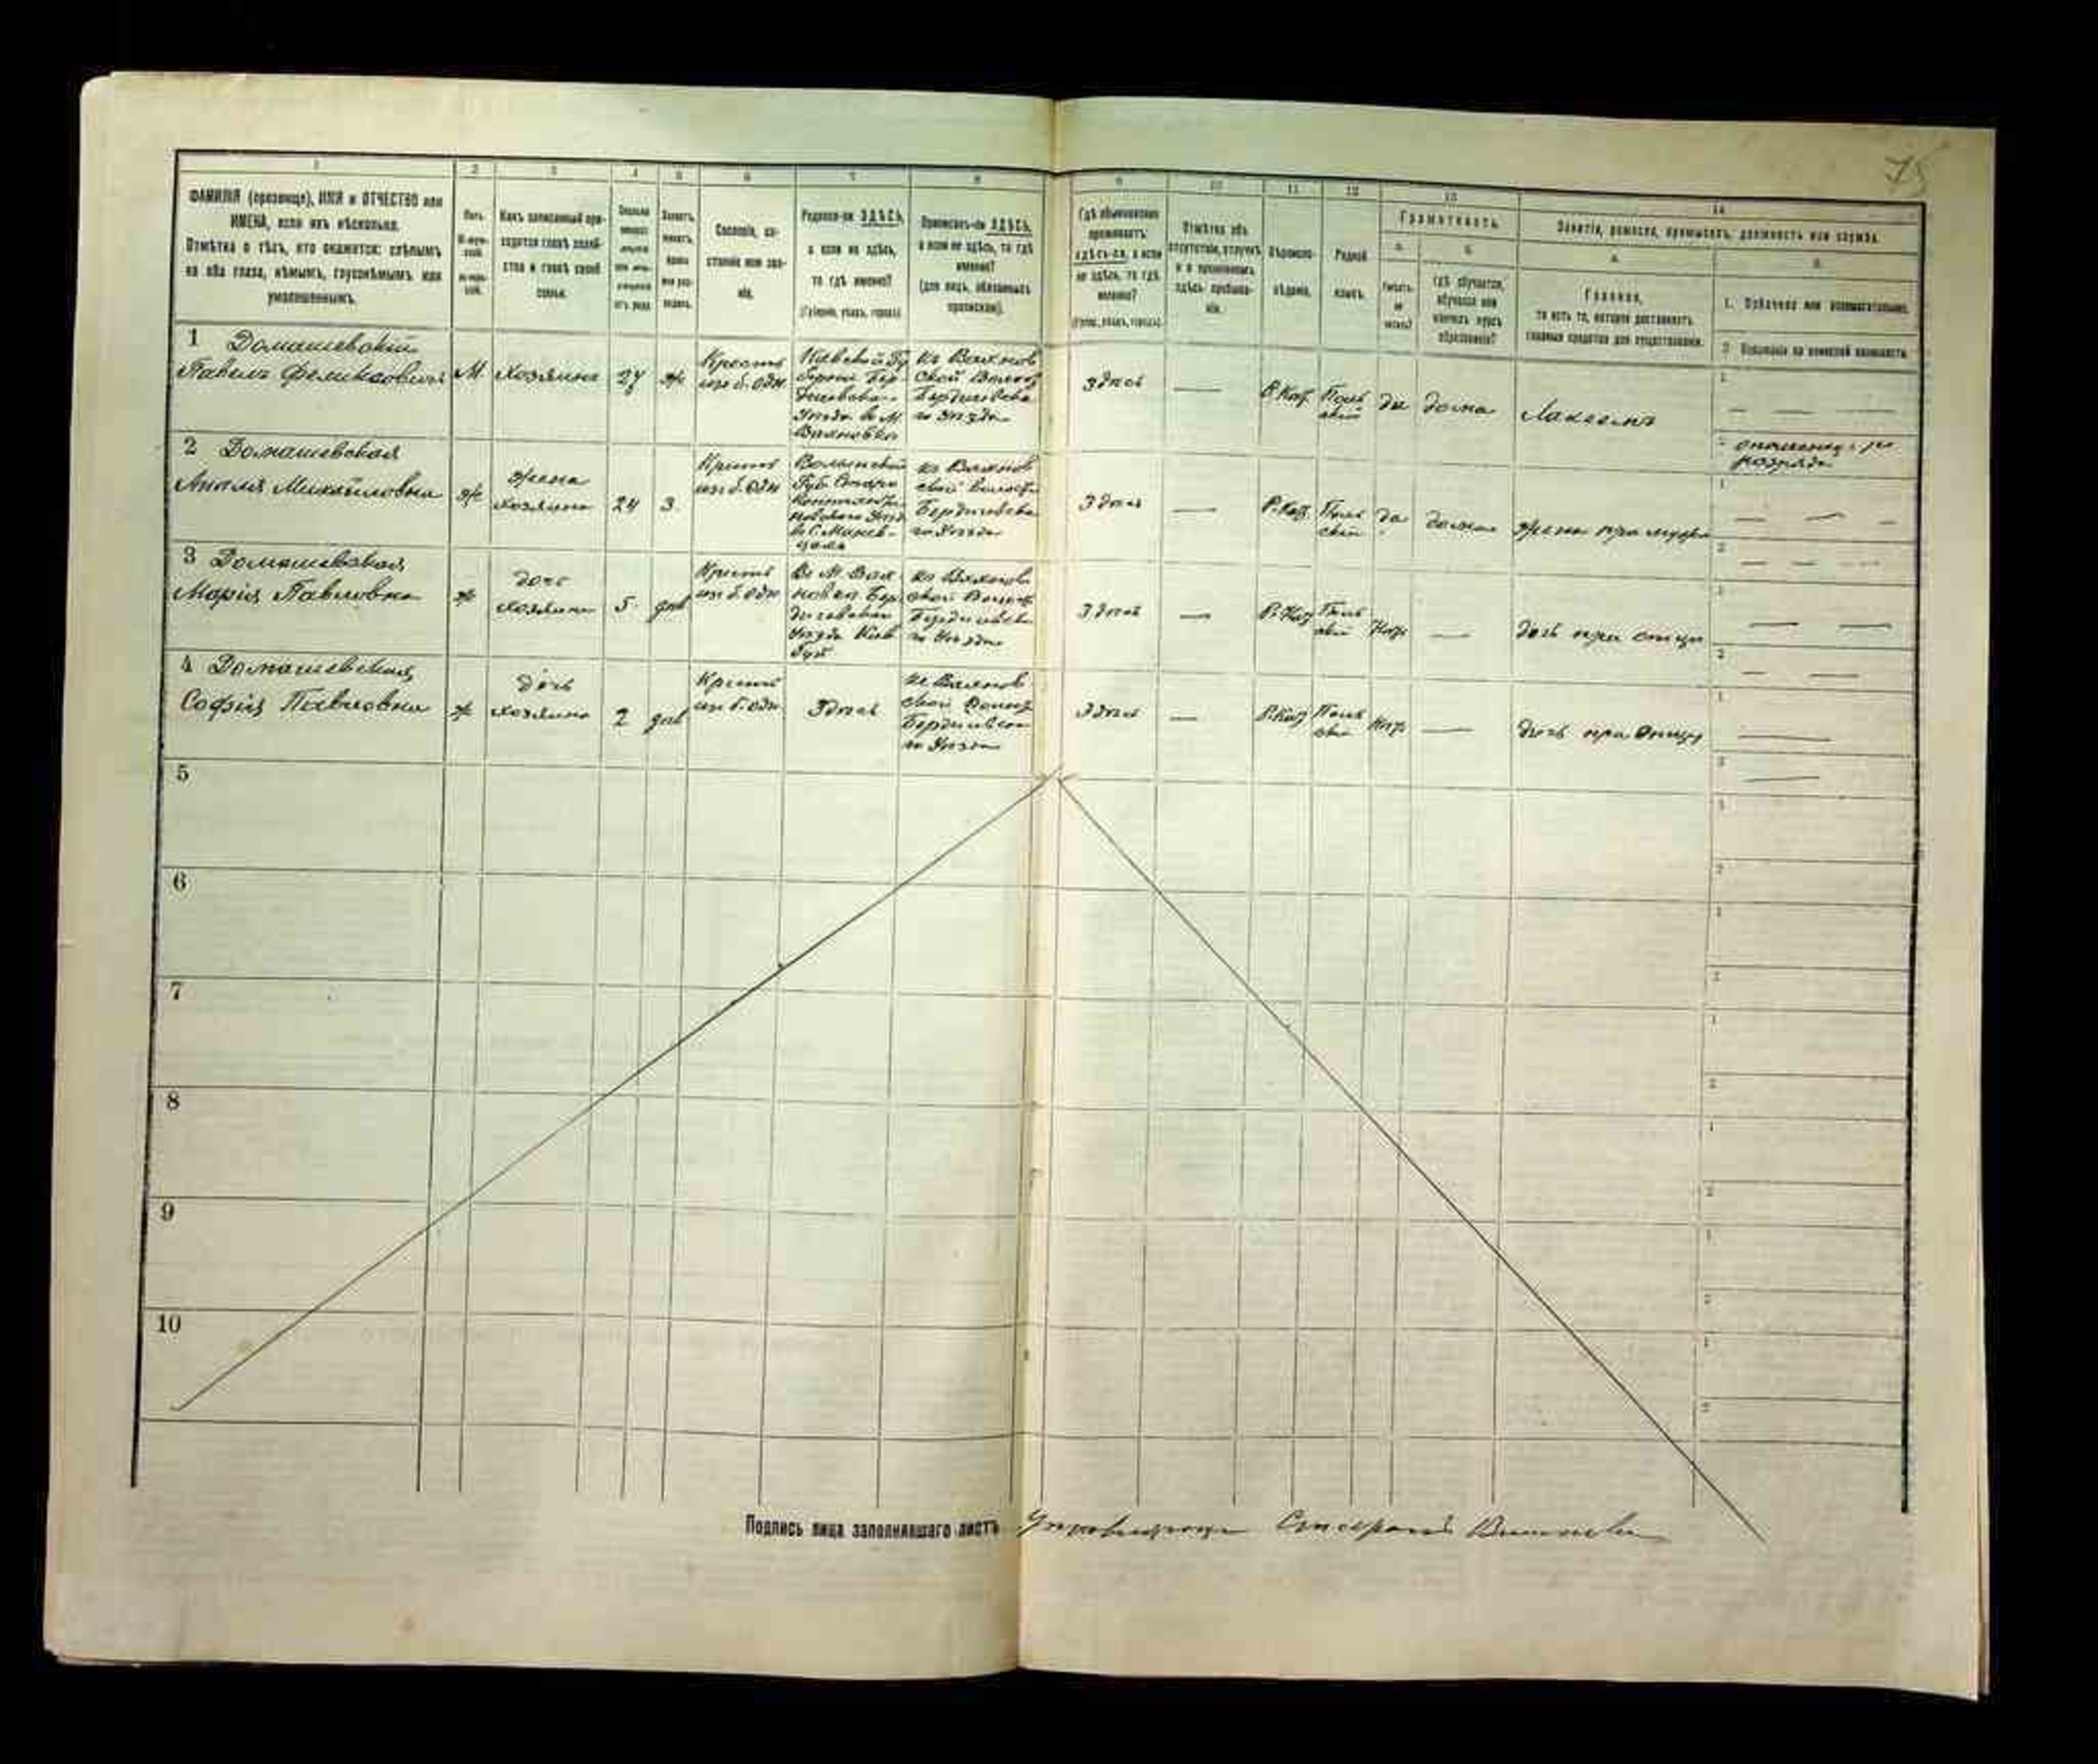 75
1 2 3 4 5 6 7 8 9 10 11 12 13 14
ФАМИЛІЯ (прозвище), ИМЯ и ОТЧЕСТВО или
ИМЕНА, если ихъ нѣсколько.
Отмѣтка о тѣхъ, кто окажется: слѣпымъ
на оба глаза, нѣмымъ, глухонѣмымъ или
умалишеннымъ.
Полъ.
Какъ записанный при-
ходится главѣ хозяй-
ства и главѣ своей
семьи.
Сословіе, со-
стояніе или зва-
ніе.
Родился-ли ЗДѢСЬ,
а если не здѣсь,
то гдѣ именно?
(Губернія, уѣздъ, городъ).
Приписанъ-ли ЗДѢСЬ,
а если не здѣсь, то гдѣ
именно?
(для лицъ, обязанныхъ
припискою).
Гдѣ обыкновенно
проживаетъ:
здѣсь-ли, а если
не здѣсь, то гдѣ
именно?
(Губер., уѣздъ, городъ).
Отмѣтка объ
отсутствіи, отлучкѣ
и о временномъ
здѣсь пребыва-
ніи.
Вѣроиспо-
вѣданіе.
Родной
языкъ.
Грамотность.
а.
Умѣетъ-
ли
читать?
б.
гдѣ обучается,
обучался или
кончилъ курсъ
образованія?
Занятіе, ремесло, промыселъ, должность или служба.
а.
Главное,
то есть то, которое доставляетъ
главныя средства для существованія.
б.
1. Побочное или вспомогательное.
2. Положеніе по воинской повинности.
1 Домашевскій
Павелъ Феликсовичъ
М.
Хозяинъ
27
ж
Крестья
изъ б. одн
Кіевской Гу
берніи Бер
дичевска-
Уѣзда в М.
Вахновка
Къ Вахнов
ской Волос
Бердичевска
го Уѣзда
Здѣсь
—
Р. Кат.
Поль
скій
да
дома
Лакеемъ
— — —
ополченец 1 го
розряда
2 Домашевская
Михайловна
ж
жена
хозяина
24
З.
Крест
изъ б. одн
Волынской
Губ. Старо
Константи
новского Уѣзд
въ С.
къ Вахнов
ской Волости
Бердичевска
го Уѣзда
Здѣсь
—
Р. Кат.
Поль
скій
да
дома
жена при мужѣ
— — —
— — —
3 Домашевская
Марія Павловна
ж
дочь
хозяина
5
дѣв
Крест
изъ б. одн
Въ М. Вах
новка Бер
дичевскаго
Уѣзда Кіев
Губ
къ Вахнов
ской Волост
Бердичевска
го Уѣзда
Здѣсь
—
Р. Кат
Поль
скій
Нѣт
—
дочь при отцѣ
— —
— —
4 Домашевская
Софія Павловна
ж
дочь
хозяина
2
дѣв
Крест
изъ б. одн.
Здѣсь
къ Вахнов
ской Волост
Бердичевска
го Уѣзда
Здѣсь
—
Р. Кат
Поль
скій
Нѣт
—
дочь при отцѣ
—
—
5
6
7
8
9
10
Подпись лица заполнявшаго листъ